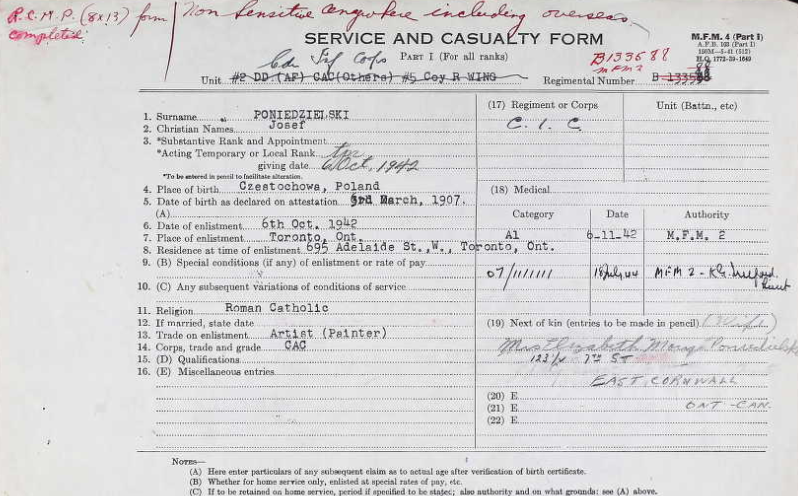 R.C.M.P. (8x13) form Non Sensitive anywhere including overseas.
completed
SERVICE AND CASUALTY FORM
M.F.M. 4 (Part I)
A.F.B. 103 (Part I)
H.Q. 1772-39-1649
Part I (For all ranks)
B133588
MFM2
Unit #2 DD (AF) CAC(Others) #5 Coy R WING
Regimental Number B
1. Surname PONIEDZIELSKI
2. Christian Names Josef
3. *Substantive Rank and Appointment
*Acting Temporary or Local Rank
giving date 6 Oct. 1942
*To be entered in pencil to facilitate alteration.
4. Place of birth Czestochowa, Poland
5. Date of birth as declared on attestation 3rd March, 1907.
(A)
6. Date of enlistment 6th Oct. 1942
7. Place of enlistment Toronto, Ont.
8. Residence at time of enlistment 695 Adelaide St.,W., Toronto, Ont.
9. (B) Special conditions (if any) of enlistment or rate of pay
10. (C) Any subsequent variations of conditions of service
11. Religion Roman Catholic
12. If married, state date
13. Trade on enlistment Artist (Painter)
14. Corps, trade and grade CAC
15. (D) Qualifications
16. (E) Miscellaneous entries
(17) Regiment or Corps Unit (Battn., etc)
C. I. C.
(18) Medical
Category Date Authority
A1 6-11-42 M.F.M. 2
07/1111111 18 July 44 MFM 2 -
(19) Next of kin (entries to be made in pencil) (Wife)
Mrs Elizabeth Mary
7TH ST
EAST CORNWALL
(20) E
(21) E ONT-CAN.
(22) E
Notes—
(A) Here enter particulars of any subsequent claim as to actual age after verification of birth certificate.
(B) Whether for home service only, enlisted at special rates of pay, etc.
(C) If to be retained on home service, period if specified to be stated; also authority and on what grounds: see (A) above.